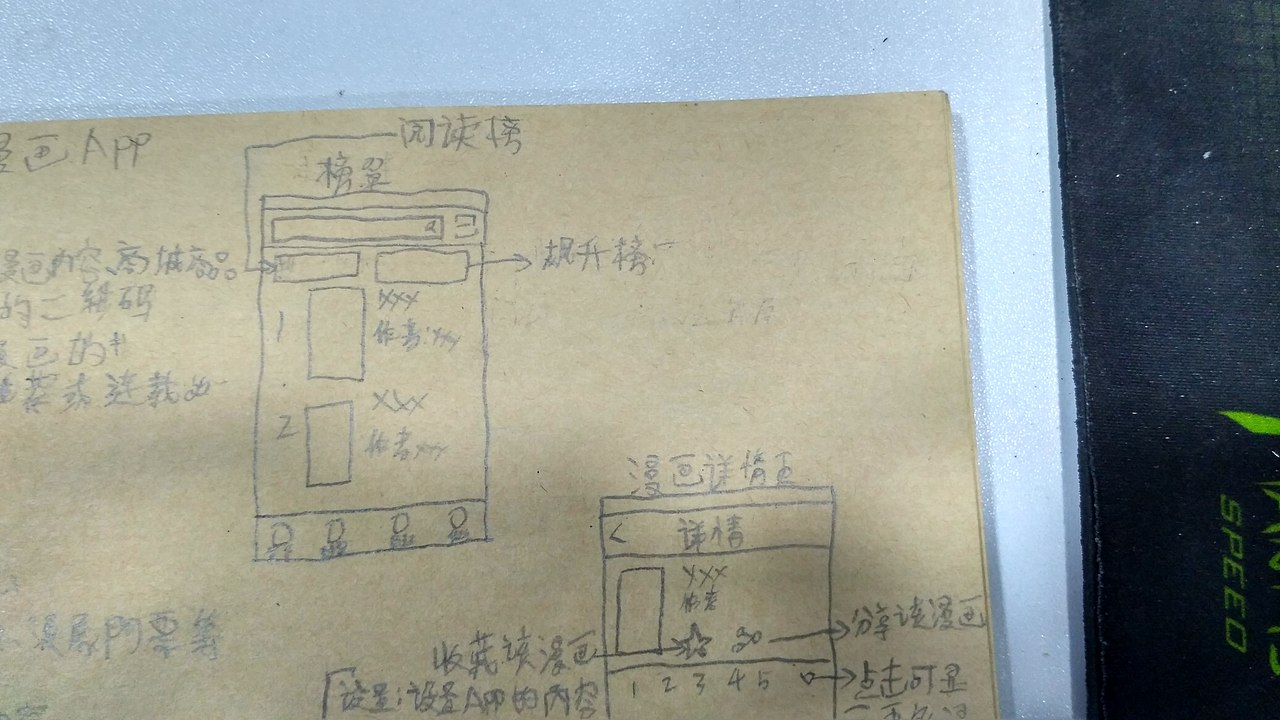 漫画App
阅读榜
榜单
漫画内容、商城商品
的二维码
飙升榜
漫画的
1
XXX
作者:xxx
连载
2
XXX
作者xxx
漫画详情
<
详情
XXX
作者
漫展门票等
分享该漫画
收藏该漫画
1 2 3 4 5
点击可显
设置:设置App的内容
SPEED